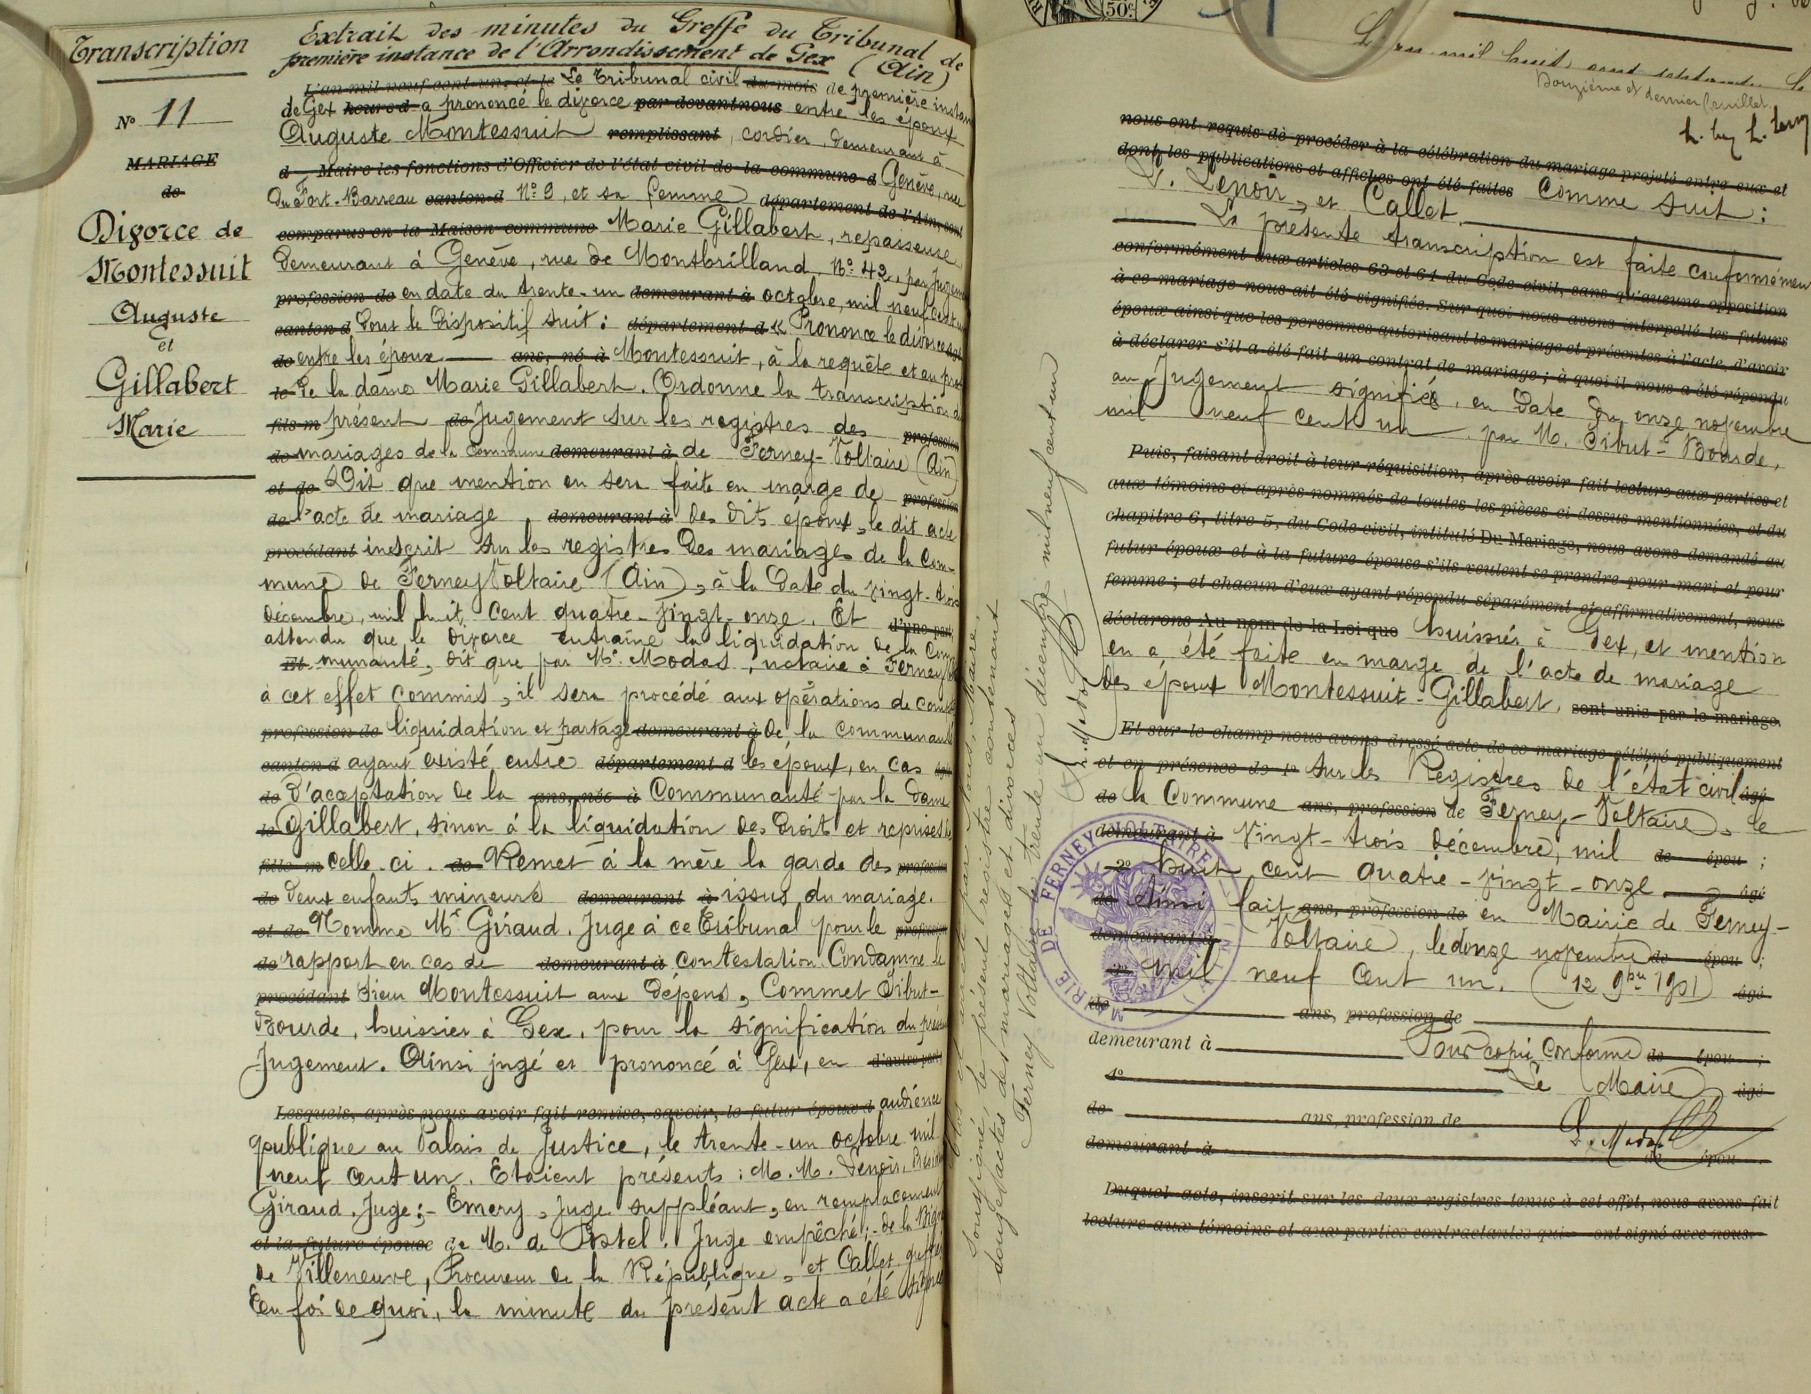 Transcription
N° 11
MARIAGE
de
Divorce de
Montessuit
Auguste
et
Gillabert
Marie
Extrait des minutes du Greffe du Tribunal de
première instance de l'Arrondissement de Gex (Ain)
L'an mil neuf cent un, et le Le Tribunal civil du mois de première instan
de Gex heure d a prononcé le divorce par devant nous entre les époux
Auguste Montessuit remplissant, cordier, demeurant à
d Maire les fonctions d'Officier de l'état civil de la commune d Genève, rue
du Fort-Barreau canton d N° 9, et sa femme département de l'Ain, sont
comparus en la Maison commune Marie Gillabert, repasseuse
demeurant à Genève, rue de Montbrilland, N° 42, par Jugeme
profession de en date du trente-un demeurant à octobre, mil neuf cent un
canton d dont le dispositif suit: département d « Prononce le divorce âgé
de entre les époux ans, né à Montessuit, à la requête et au prof
le de la dame Marie Gillabert. Ordonne la transcription du
fils m présent de Jugement sur les registres des profession
de mariages de la commune demeurant à de Ferney-Voltaire (Ain)
et de Dit que mention en sera faite en marge de profession
de l'acte de mariage demeurant à des dits époux, le dit acte
procédant inscrit sur les registres des mariages de la Com-
mune de Ferney Voltaire (Ain), à la date du vingt-trois
décembre, mil huit cent quatre-vingt-onze. Et d'une part
attendu que le divorce entraîne la liquidation de la Com
Et munauté, dit que par Me. Modas, notaire à Ferney
à cet effet commis, il sera procédé aux opérations de comp
profession de liquidation et partage demeurant à de la communauté
canton d ayant existé entre département d les époux, en cas âgée
de d'acceptation de la ans, née à Communauté par la dame
le Gillabert, sinon à la liquidation des droits et reprises de
fille m celle-ci. de Remet à la mère la garde des profession
de deux enfants mineurs demeurant à issus du mariage.
et de Nomme Mr Giraud, Juge à ce Tribunal pour le profession
de rapport en cas de demeurant à contestation. Condamne le
procédant Sieur Montessuit aux dépens, Commet Tibut-
Bourde, huissier à Gex, pour la signification du prése
Jugement. Ainsi jugé et prononcé à Gex, en d'autre part
Lesquels, après nous avoir fait remise, savoir, le futur époux d audience
publique au Palais de Justice, le trente-un octobre mil
neuf cent un. Etaient présents: M.M. Lenoir, Présid
Giraud, Juge; - Emery, Juge suppléant, en remplacement
et la future épouse de M. de Postel, Juge empêché; - de la Bigne
de Villeneuve, Procureur de la République, et Callet, greffier
En foi de quoi, la minute du présent acte a été signée
50c.
Le mil huit cent
Douzième et dernier feuillet.
nous ont requis de procéder à la célébration du mariage projeté entre eux et
dont les publications et affiches ont été faites Comme suit:
S. Lenoir, et Callet.
La présente transcription est faite conformémen
conformément aux articles 63 et 64 du Code civil, sans qu'aucune opposition
à ce mariage nous ait été signifiée. Sur quoi nous avons interpellé les futurs
époux ainsi que les personnes autorisant le mariage et présentes à l'acte, d'avoir
à déclarer s'il a été fait un contrat de mariage; à quoi il nous a été répondu
au Jugement signifié, en date du onze novembre
mil neuf cent un par M. Tibut-Bourde,
Puis, faisant droit à leur réquisition, après avoir fait lecture aux parties et
aux témoins ci-après nommés de toutes les pièces ci-dessus mentionnées, et du
chapitre 6, titre 5, du Code civil, intitulé Du Mariage, nous avons demandé au
futur époux et à la future épouse s'ils veulent se prendre pour mari et pour
femme; et chacun d'eux ayant répondu séparément et affirmativement, nous
déclarons Au nom de la Loi que huissier à Gex, et mention
en a été faite en marge de l'acte de mariage
des époux Montessuit-Gillabert, sont unis par le mariage.
Et sur le champ nous avons dressé acte de ce mariage célébré publiquement
et en présence de 1° sur les Registres de l'état civil âgé
de la Commune ans, profession de de Ferney-Voltaire, le
demeurant à vingt-trois décembre, mil de épou ;
2° huit cent quatre-vingt-onze âgé
de Ainsi fait ans, profession de en Mairie de Ferney-
demeurant à Voltaire, le douze novembre de épou ;
3° mil neuf cent un. (12 9bre 1901) âgé
de ans, profession de
demeurant à Pour copie conforme de épou ;
4° Le Maire âgé
de ans, profession de
demeurant à de épou .
Duquel acte, inscrit sur les deux registres tenus à cet effet, nous avons fait
lecture aux témoins et aux parties contractantes qui ont signé avec nous.
MAIRIE DE FERNEY-VOLTAIRE (AIN)
par Nous, Maire,
soussigné, le présent registre contenant
douze actes de mariages et divorces
Ferney Voltaire le trente un décembre mil neuf cent un